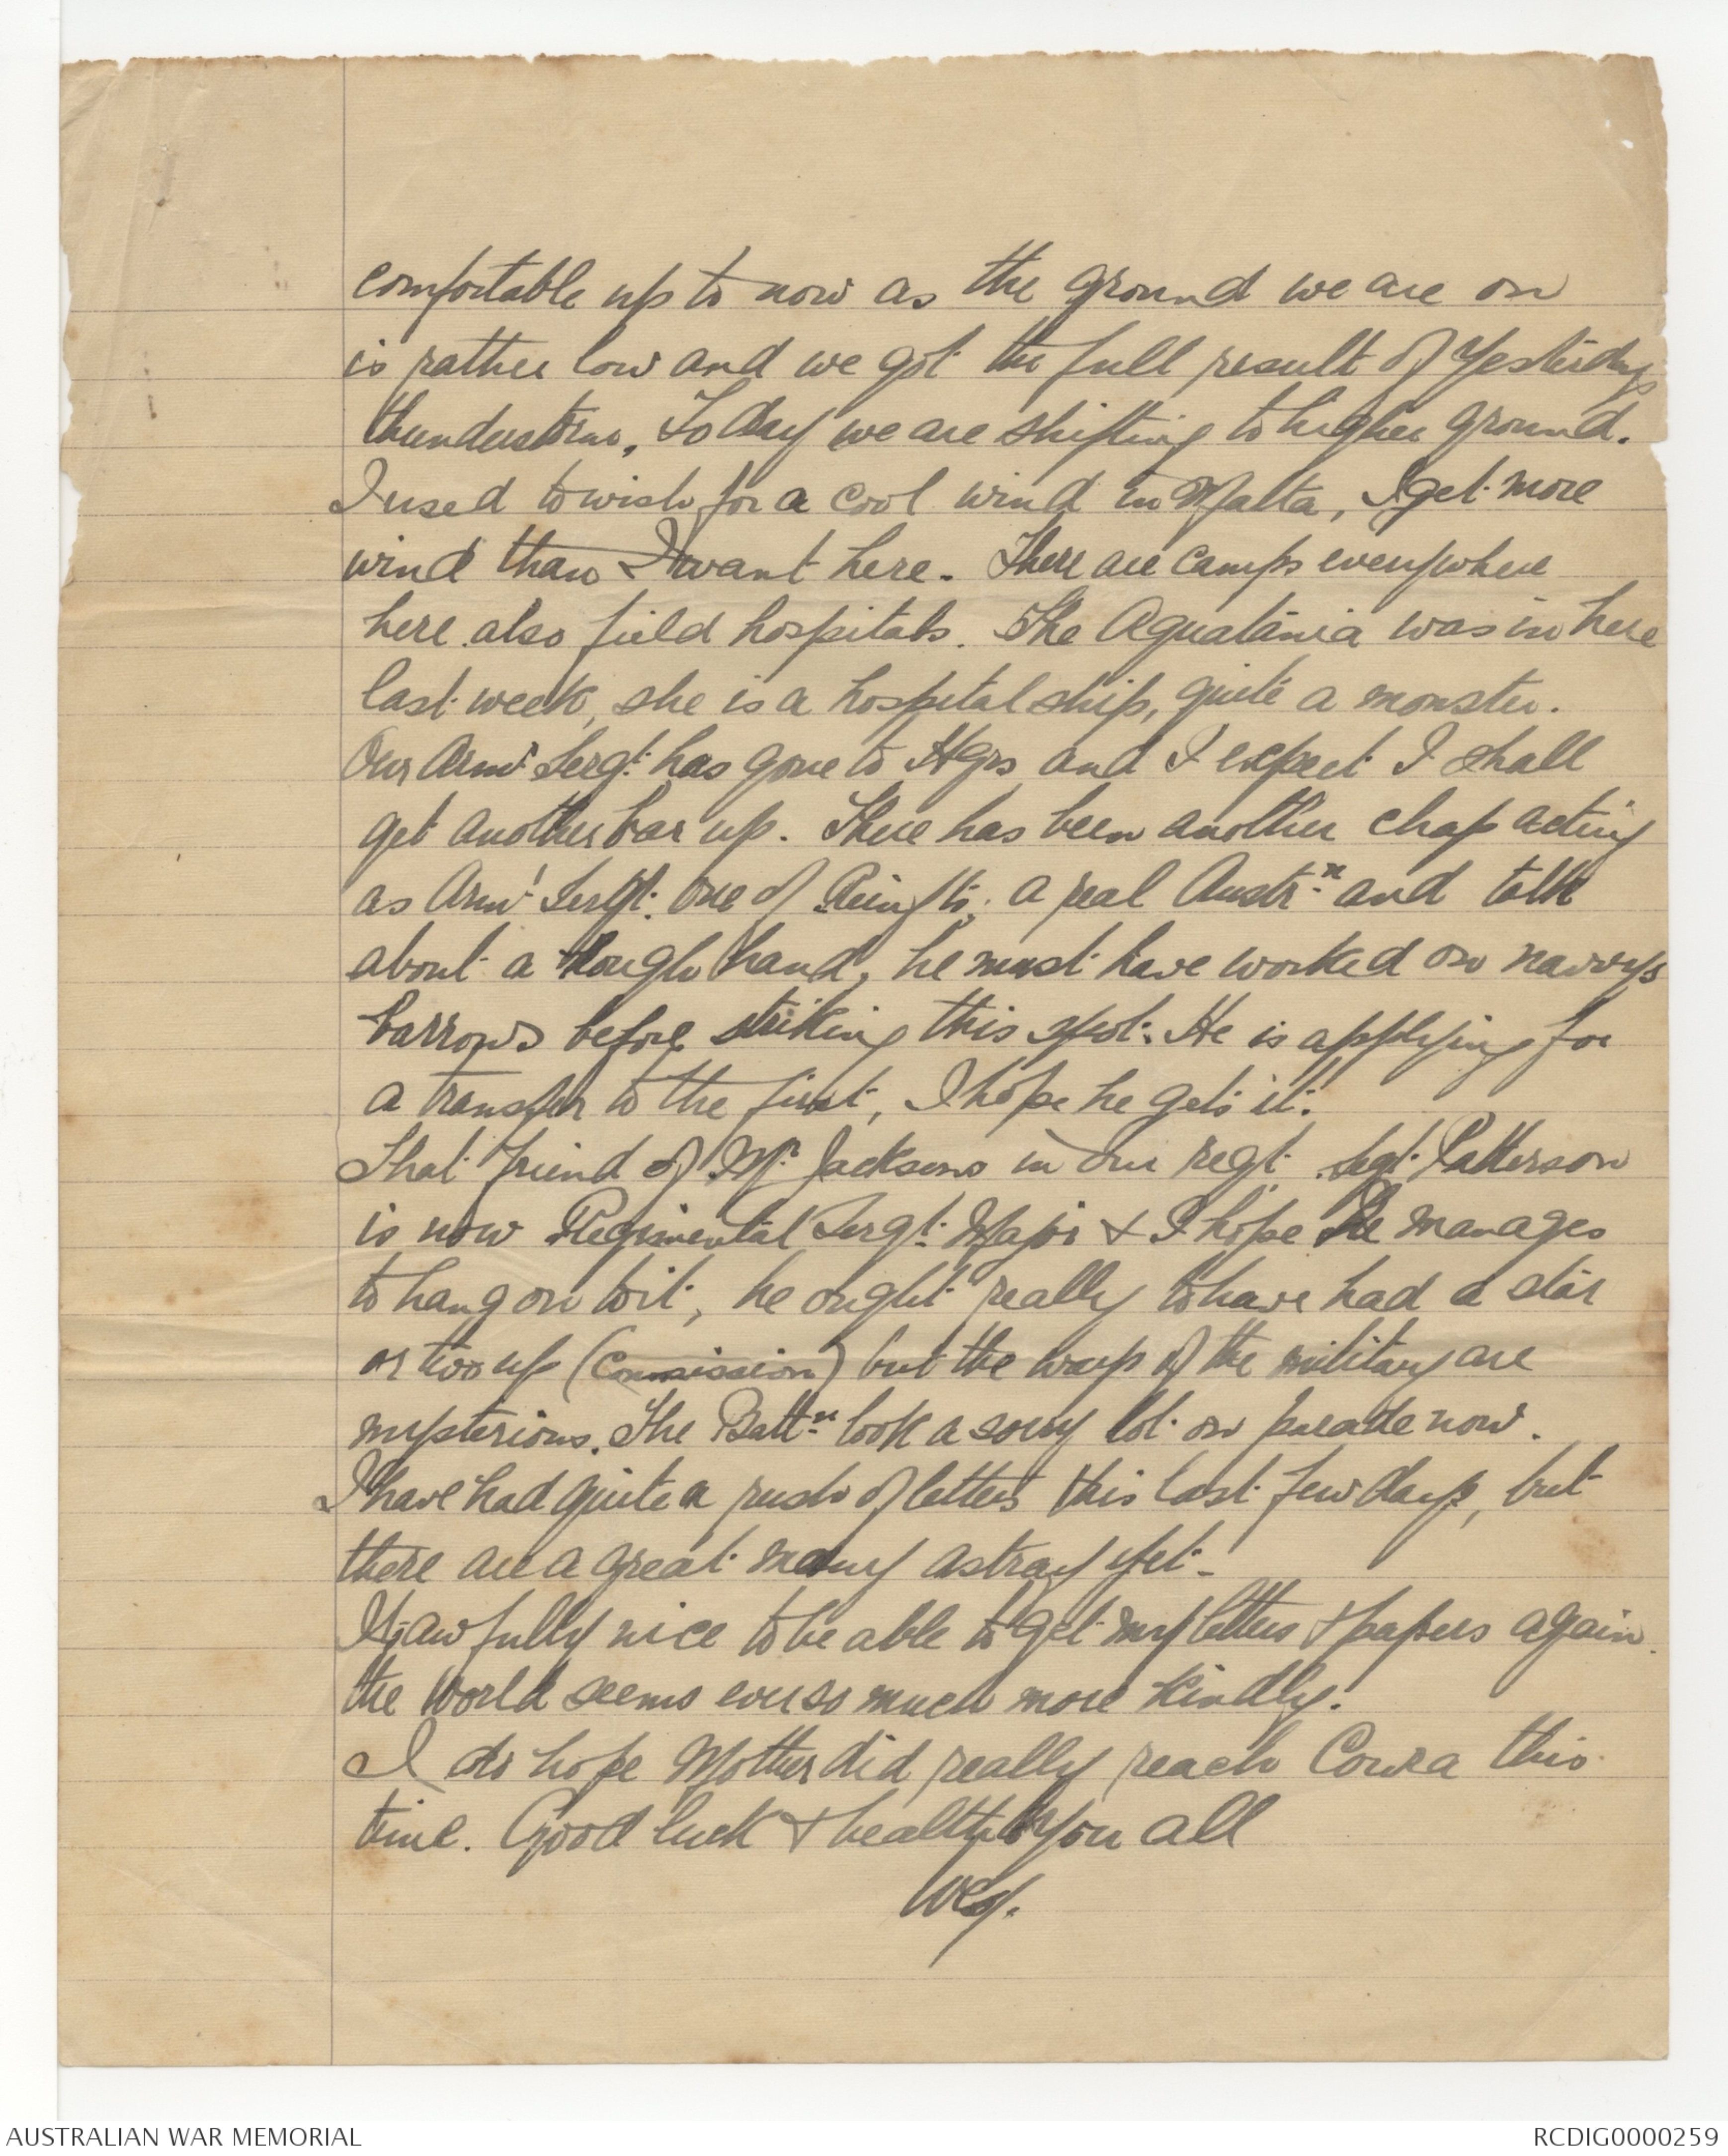 comfortable up to now as the ground we are on
is rather low and we got the full result of Yesterdays
thunderstorm. To Day we are shifting to higher ground.
I used to wish for a cool wind in Malta, I get more
wind than I want here. There are camps everywhere
here also field hospitals. The Aquatania was in here
last week, she is a hospital ship, quite a monster.
Our Armr Sergt. has gone to Hqrs and I expect I shall
get another bar up. There has been another chap acting
as Armr Sergt. one of Reinfts, a real Austrn and talk
about a rough hand, he must have worked on navvys
barrows before striking this spot. He is applying for
a transfer to the first, I hope he gets it.
That friend of Mr. Jacksons in our regt. Sgt. Patterson
is now Regimental Sergt. Major & I hope he manages
to hang on to it, he ought really to have had a star
or two up (Commission) but the ways of the military are
mysterious. The Battn look a sorry lot on parade now.
I have had quite a rush of letters this last few days, but
there are a great many astray yet.
Its awfully nice to be able to get my letters & papers again
the world seems ever so much more kindly.
I do hope Mother did really reach Cowra this
time. Good luck & health to you all
Wes.
AUSTRALIAN WAR MEMORIAL
RCDIG0000259